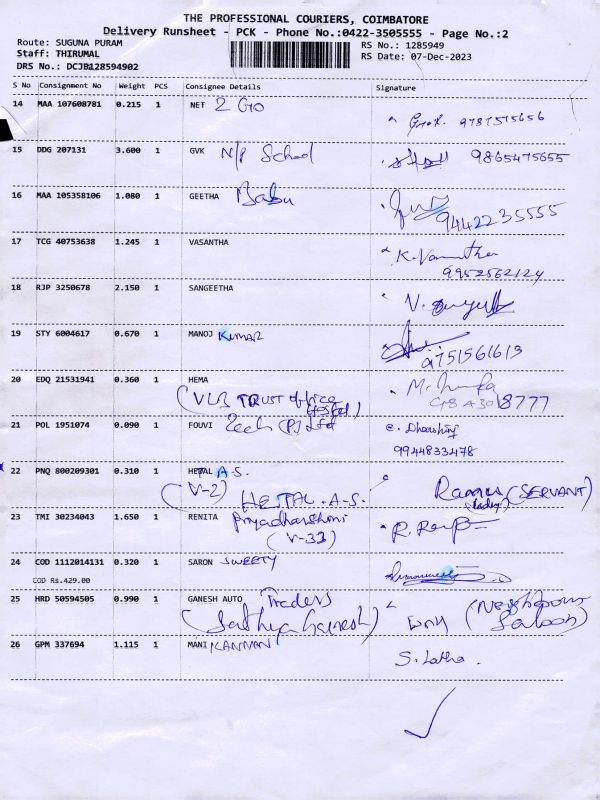 THE PROFESSIONAL COURIERS, COIMBATORE
Delivery Runsheet - PCK - Phone No.:0422-3505555 - Page No.:2
Route: SUGUNA PURAM RS No.: 1285949
Staff: THIRUMAL RS Date: 07-Dec-2023
DRS No.: DCJB128594902
S No Consignment No Weight PCS Consignee Details Signature
14 MAA 107608781 0.215 1 NET 2 GO
9787575656
15 DDG 207131 3.600 1 GVK N/P School 9865475655
16 MAA 105358106 1.080 1 GEETHA Babu
9442235555
17 TCG 40753638 1.245 1 VASANTHA K. Vasantha
9952562124
18 RJP 3250678 2.150 1 SANGEETHA
19 STY 6004617 0.670 1 MANOJ KUMAR
9751561613
20 EDQ 21531941 0.360 1 HEMA
(VLB TRUST office
Hostel)
21 POL 1951074 0.090 1 FOUVI Tech (P) Ltd
9944833478
22 PNQ 800209301 0.310 1 HETAL A.S.
(V-2) HETAL.A-S. (SERVANT)
lady
23 TMI 30234043 1.650 1 RENITA Priyadharshini
(V-33)
24 COD 1112014131 0.320 1 SARON SWEETY
COD Rs.429.00
25 HRD 50594505 0.990 1 GANESH AUTO Traders
(Sathya Ganesh) (Neighbour
Saloon)
26 GPM 337694 1.115 1 MANI KANNAN S. Latha.